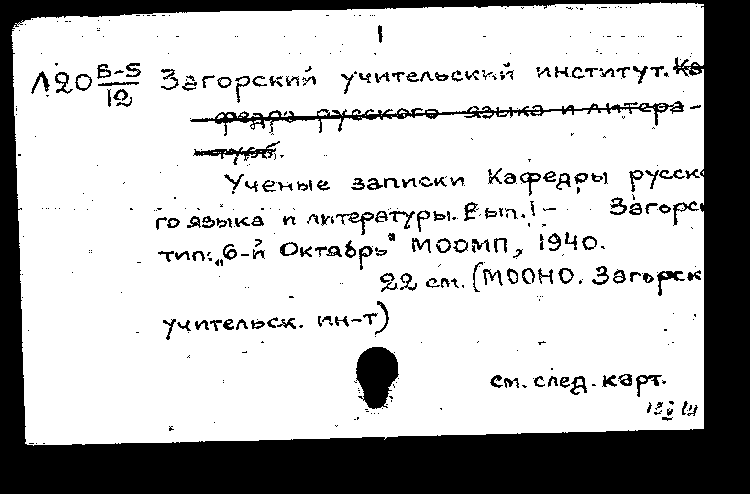 I
Л20 В-5/12 Загорский учительский институт. Ка-
федра русского языка и литера-
туры.
Ученые записки Кафедры русско
го языка и литературы. Вып. I – Загорск
тип: „6-й Октябрь" МООМП, 1940.
22 см. (МООНО. Загорск
учительск. ин-т)
см. след. карт.